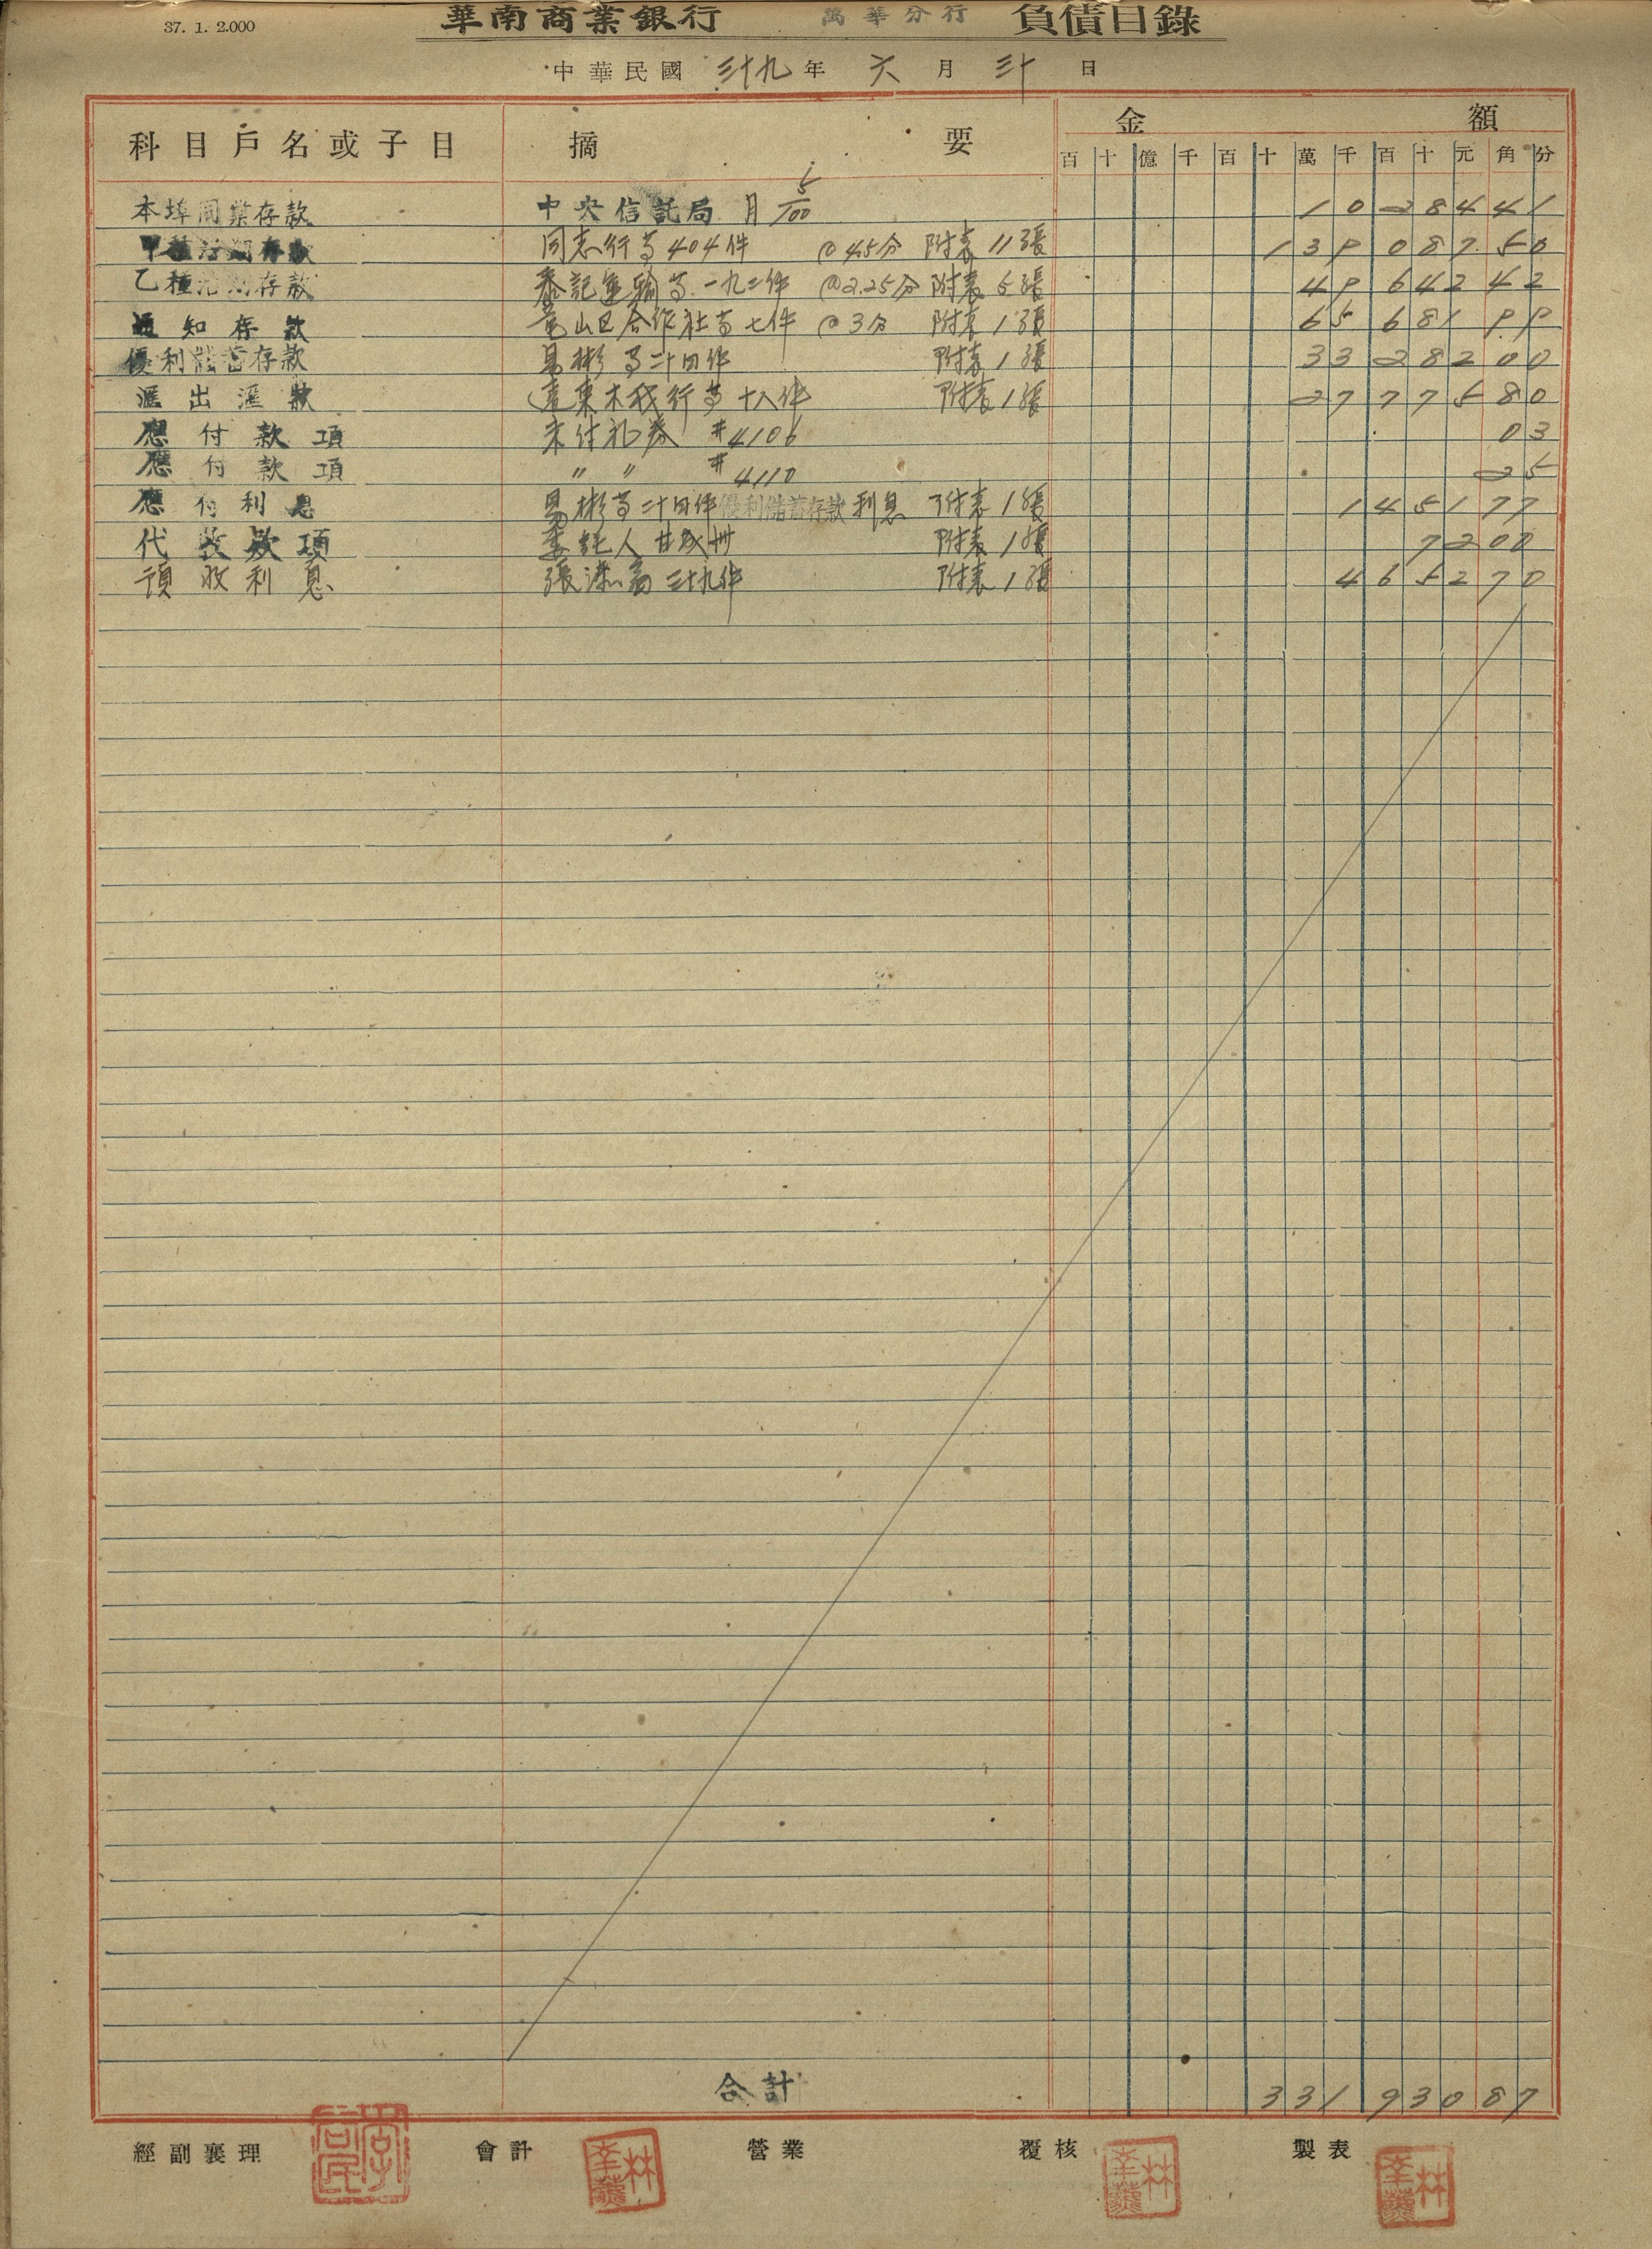 37. 1. 2.000
華南商業銀行 萬華分行 負債目錄
中華民國 三十九年 六月 三十日
科目戶名或子目 摘要 金額
百十億千百十萬千百十元角分
本埠同業存款 中央信託局 月 5/100 10 284 41
甲種活期存款 同志行等 404件 @45分 附表 11張 139 087 50
乙種活期存款 泰記運輸等 一九二件 @2.25分 附表 5張 49 642 42
通知存款 龍山区合作社等 七件 @3分 附表 1張 65 681 99
優利儲蓄存款 易彬等 二十四件 附表 1張 33 282 00
滙出滙款 遠東木材行等 十八件 附表 1張 27 775 80
應付款項 未付礼券 #4106 03
應付款項 〃 〃 #4110 25
應付利息 易彬等 二十四件 優利儲蓄存款 利息 附表 1張 1 451 77
代收款項 委託人 附表 1張 72 00
預收利息 張 三十九件 附表 1張 4 652 70
合計 331 930 87
經副襄理 會計 營業 覆核 製表